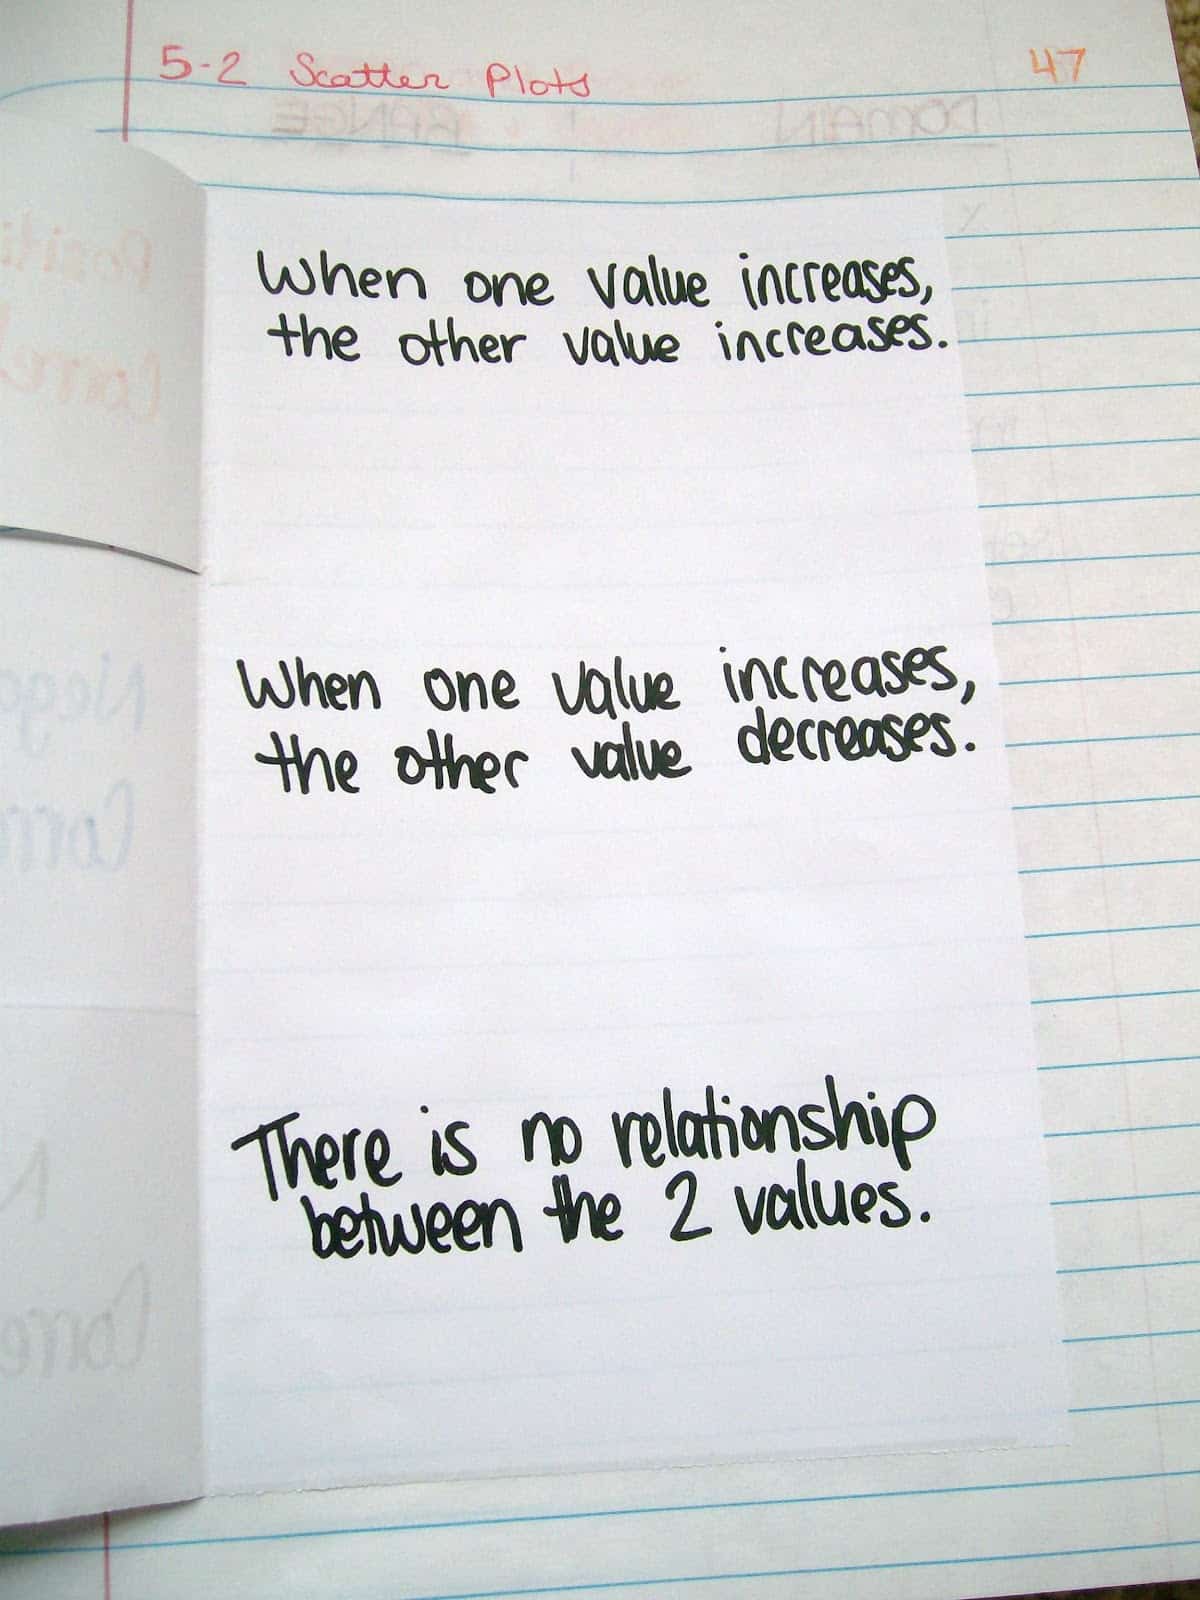 5-2 Scatter Plots 47
When one value increases,
the other value increases.
When one value increases,
the other value decreases.
There is no relationship
between the 2 values.
DOMAIN RANGE
Positi
Corre
Nega
Corre
N
Corre